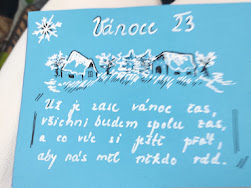 Vánoce 23
Už je zase vánoc čas,
všichni budem spolu zas,
a co víc si ještě přát,
aby nás měl někdo rád.